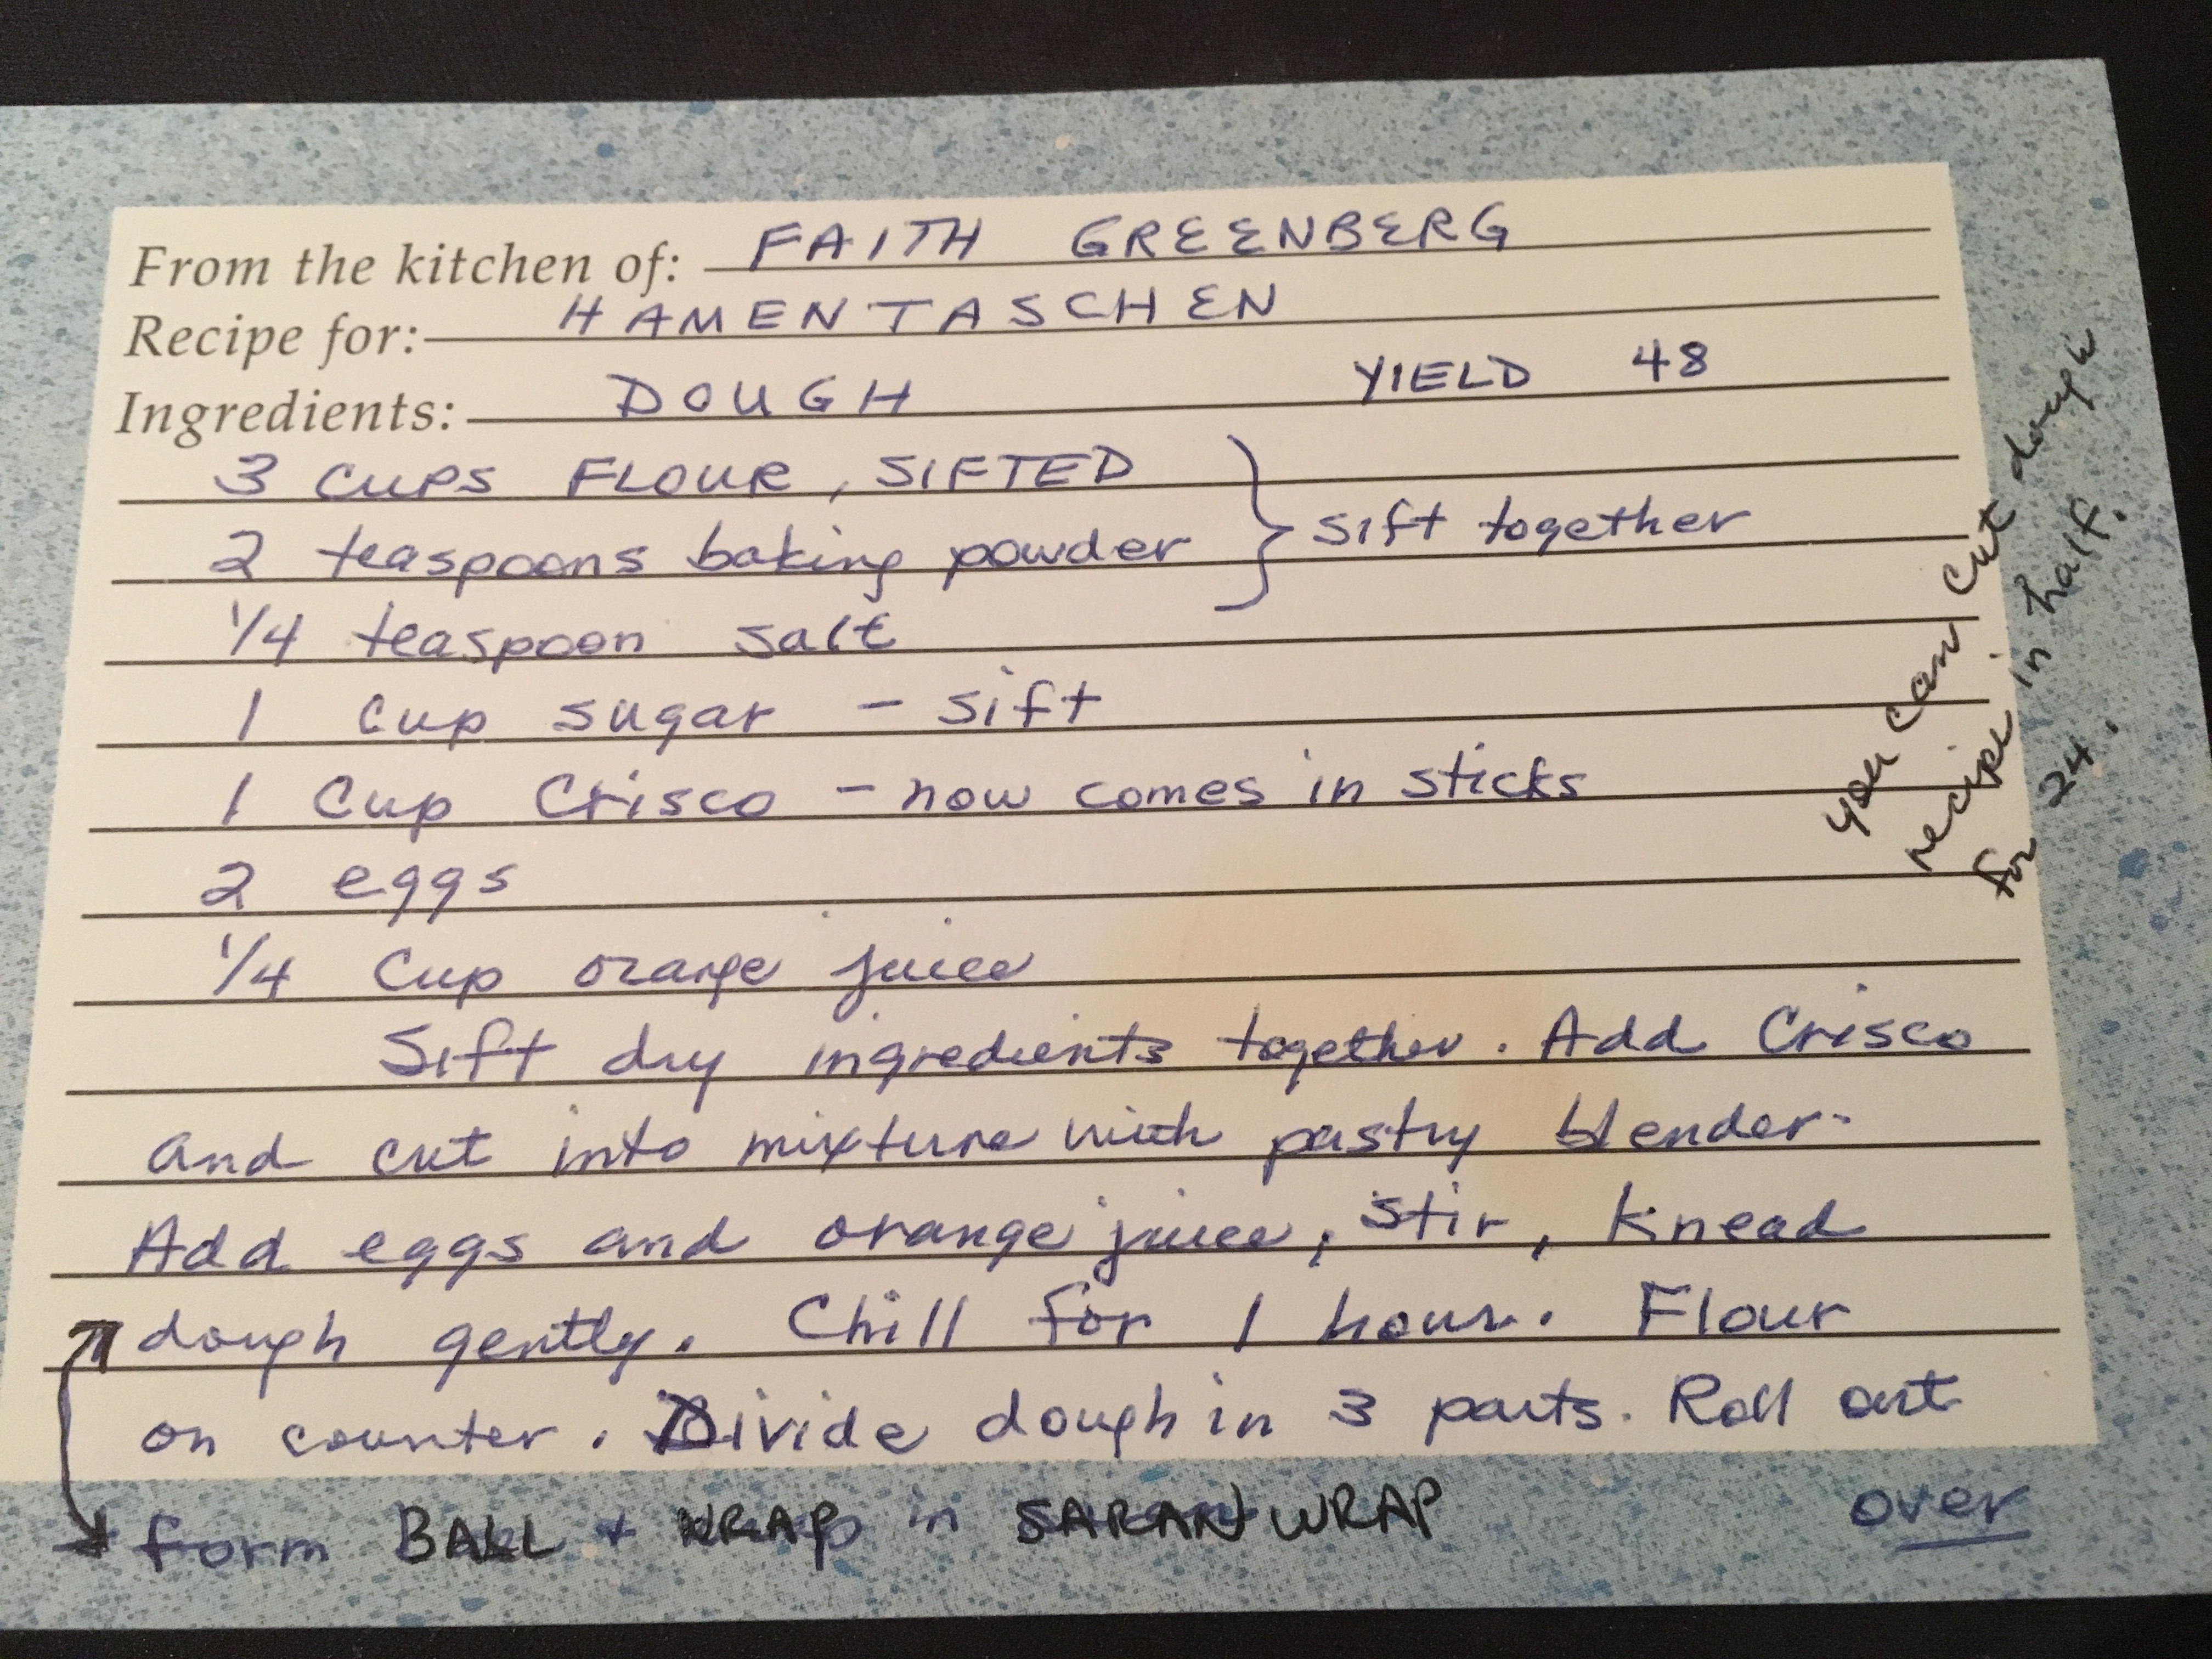 From the kitchen of: FAITH GREENBERG
Recipe for: HAMENTASCHEN
Ingredients: DOUGH YIELD 48
3 CUPS FLOUR, SIFTED
2 teaspoons baking powder } sift together
1/4 teaspoon salt
1 cup sugar - sift
1 Cup Crisco - now comes in sticks
2 eggs
1/4 Cup orange juice
Sift dry ingredients together. Add Crisco
and cut into mixture with pastry blender.
Add eggs and orange juice, stir, knead
dough gently. Chill for 1 hour. Flour
on counter. Divide dough in 3 parts. Roll out
form BALL + WRAP in SARAN WRAP
over
you can cut dough
recipe in half.
for 24.